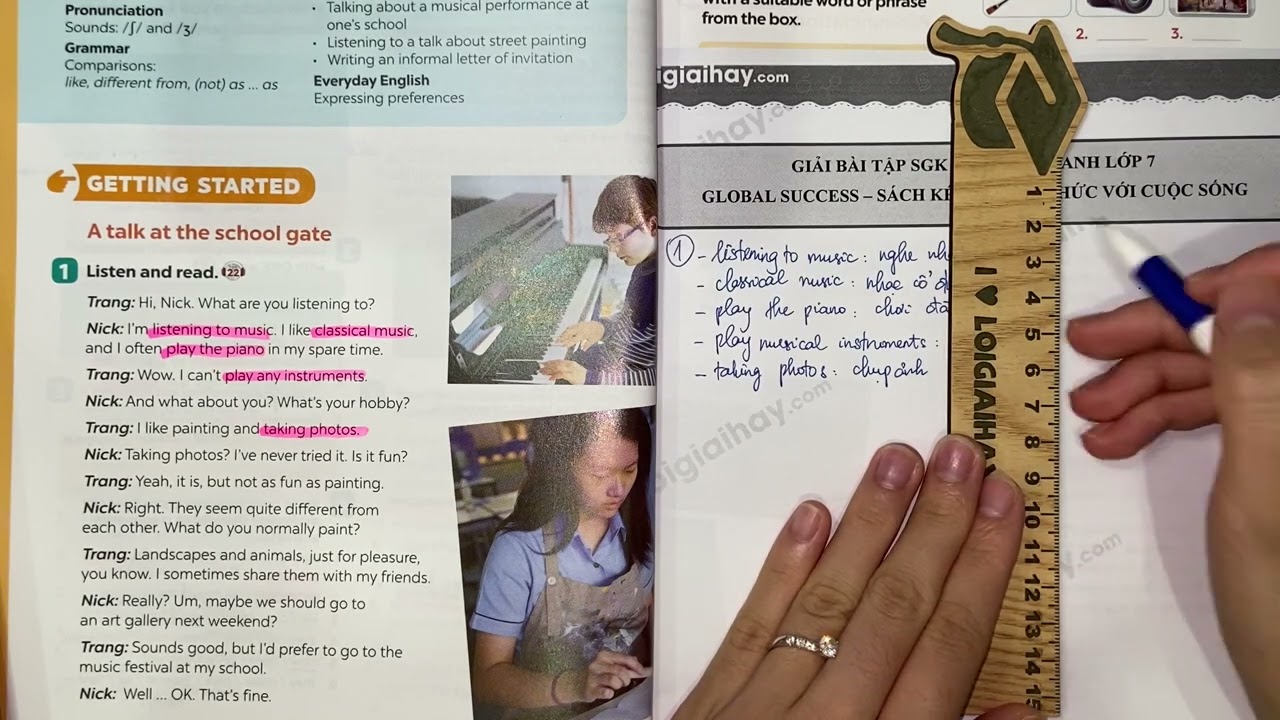 Pronunciation
Sounds: /ʃ/ and /ʒ/
Grammar
Comparisons:
like, different from, (not) as ... as
• Talking about a musical performance at
one's school
• Listening to a talk about street painting
• Writing an informal letter of invitation
Everyday English
Expressing preferences
GETTING STARTED
A talk at the school gate
1 Listen and read. 22
Trang: Hi, Nick. What are you listening to?
Nick: I'm listening to music. I like classical music,
and I often play the piano in my spare time.
Trang: Wow. I can't play any instruments.
Nick: And what about you? What's your hobby?
Trang: I like painting and taking photos.
Nick: Taking photos? I've never tried it. Is it fun?
Trang: Yeah, it is, but not as fun as painting.
Nick: Right. They seem quite different from
each other. What do you normally paint?
Trang: Landscapes and animals, just for pleasure,
you know. I sometimes share them with my friends.
Nick: Really? Um, maybe we should go to
an art gallery next weekend?
Trang: Sounds good, but I'd prefer to go to the
music festival at my school.
Nick: Well ... OK. That's fine.
with a suitable word or phrase
from the box.
2. 3.
igiaihay.com
GIẢI BÀI TẬP SGK ANH LỚP 7
GLOBAL SUCCESS – SÁCH KẾ HỨC VỚI CUỘC SỐNG
1 - listening to music: nghe nh
- classical music: nhạc cổ
- play the piano: chơi đà
- play musical instruments:
- taking photos: chụp ảnh
I ♥ LOIGIAIHAY
1
2
3
4
5
6
7
8
9
10
11
12
13
14
15